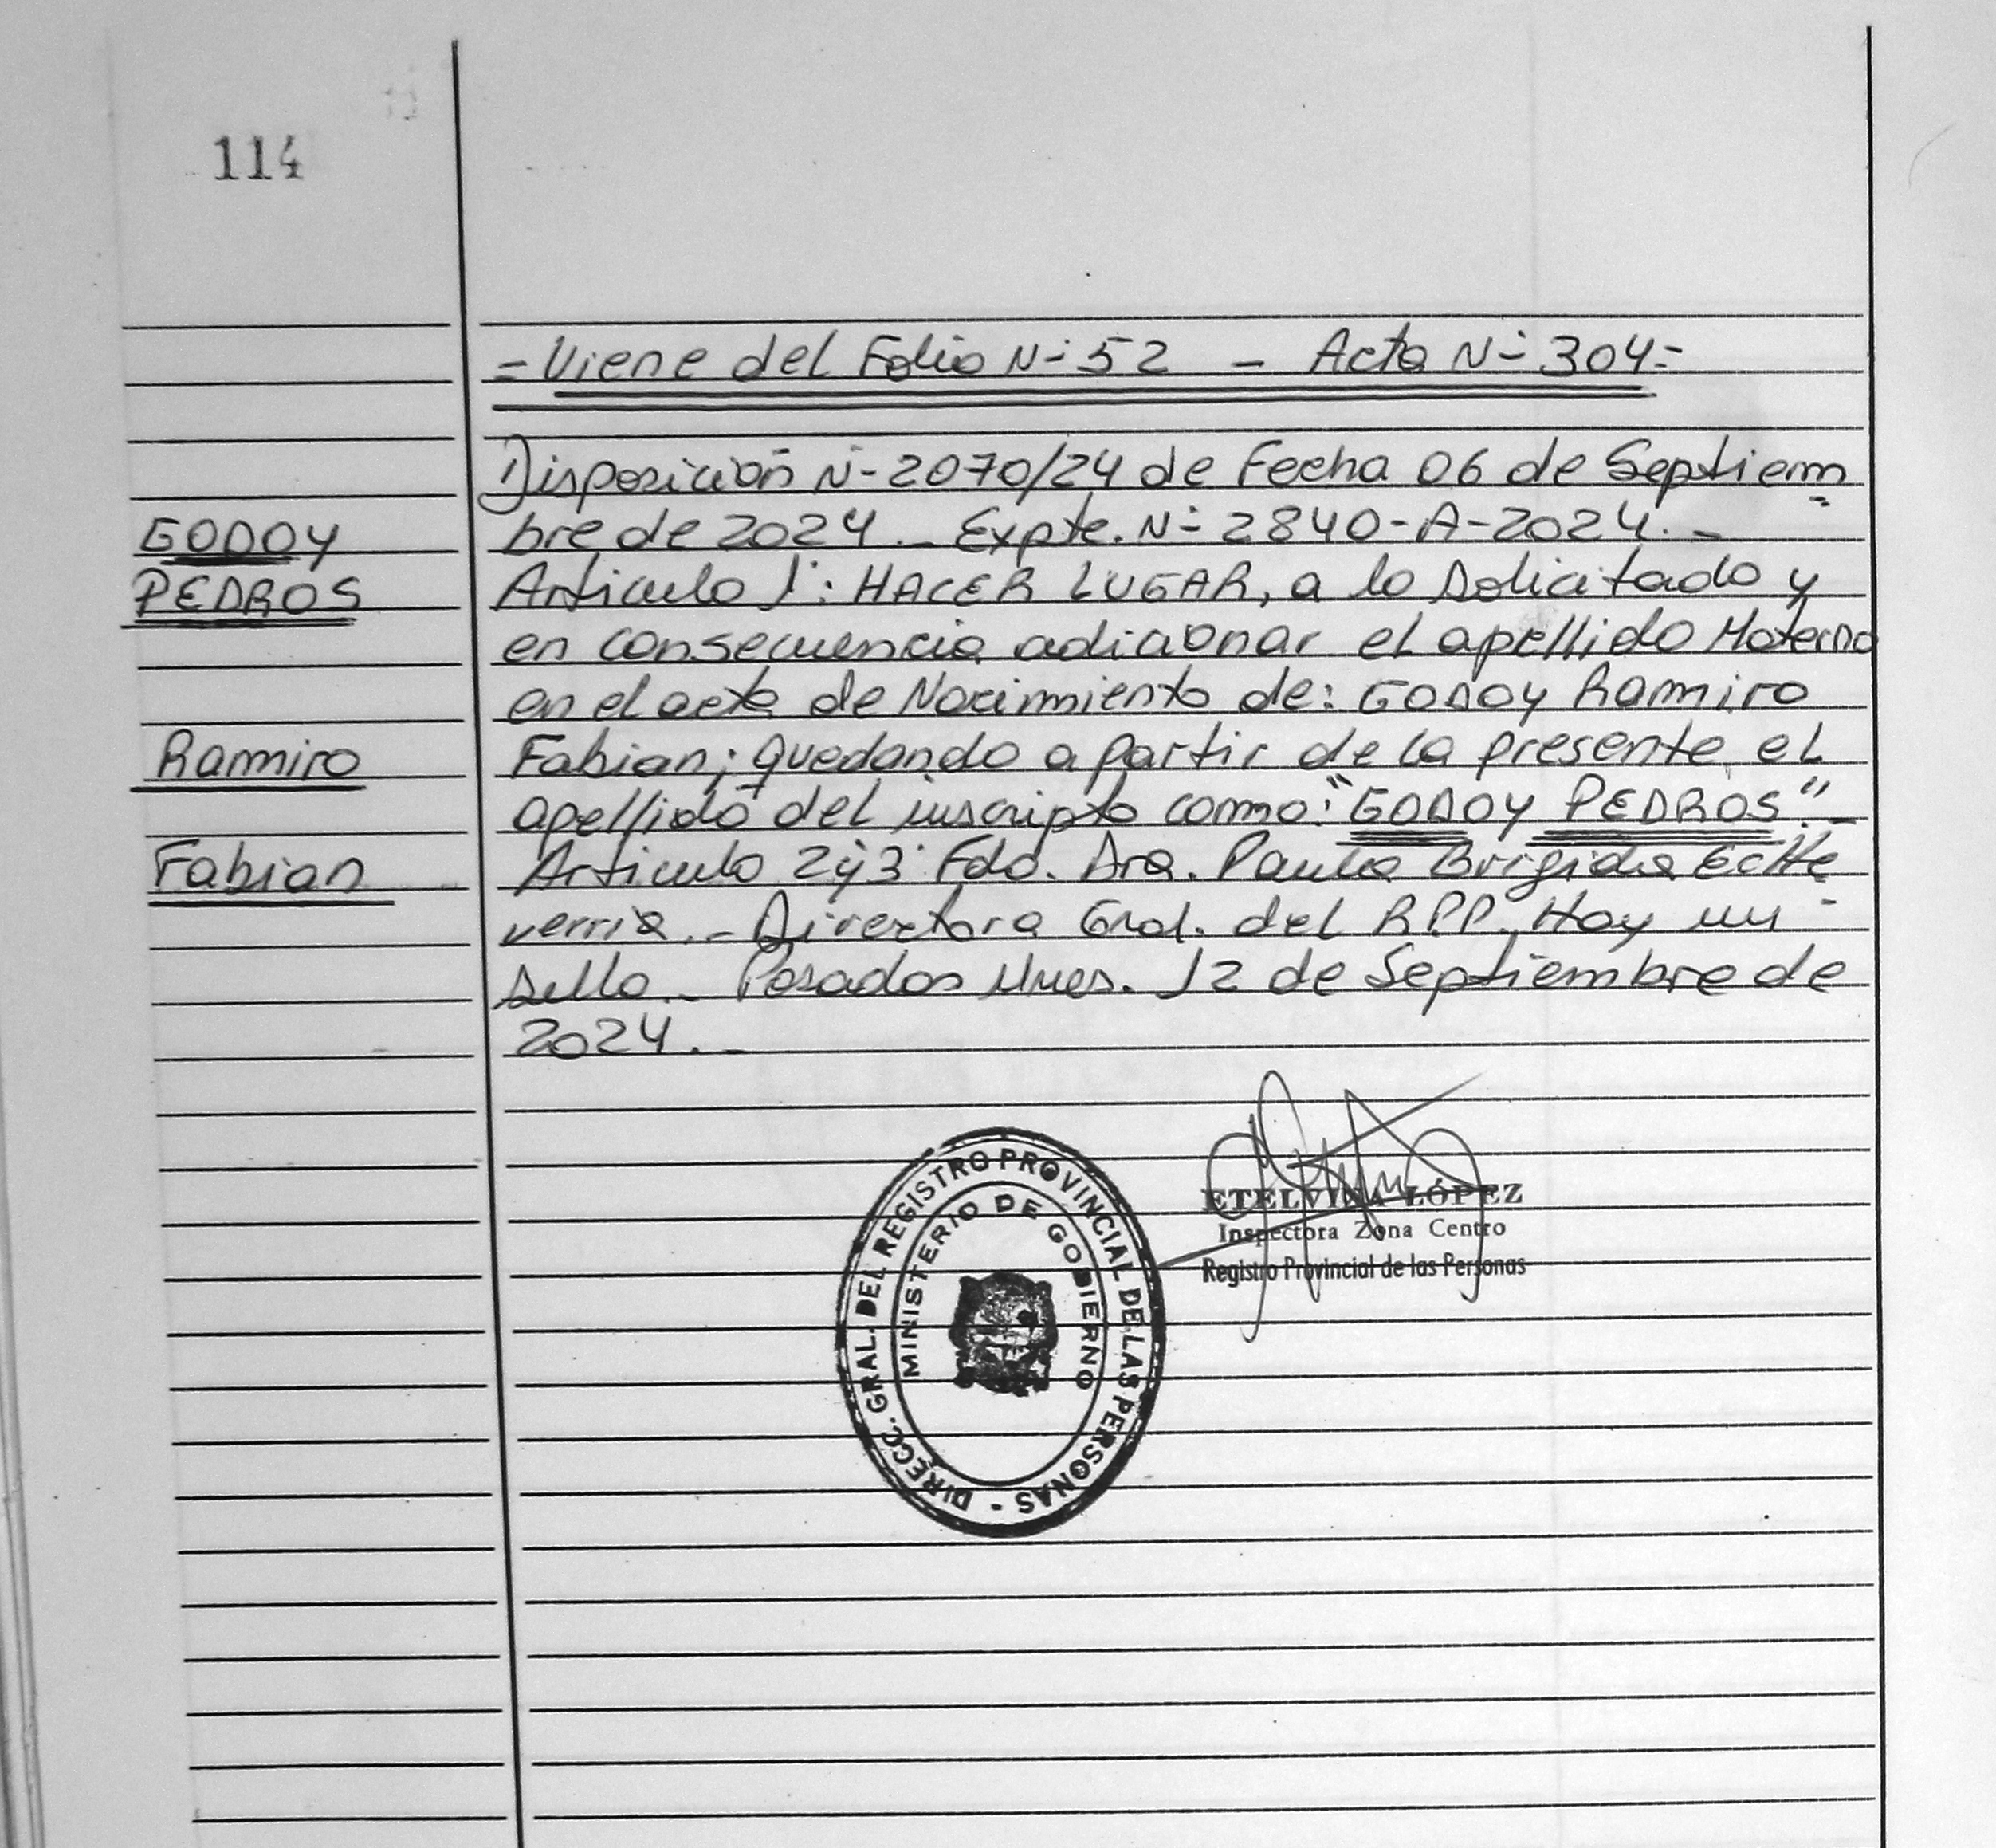 114
= Viene del Folio N- 52 - Acta N- 304 =
Disposición N- 2070/24 de Fecha 06 de Septiem
GODOY
bre de 2024. - Expte. N- 2840-A-2024. -
PEDROS
Articulo 1°: HACER LUGAR, a lo solicitado y
en consecuencia adicionar el apellido Materno
en el acta de Nacimiento de: GODOY Ramiro
Ramiro
Fabian; quedando a partir de la presente el
apellido del inscripto como: "GODOY PEDROS". -
Fabian
Articulo 2 y 3° Fdo. Dra. Paula Brigida Eche
verria. - Directora Gral. del R.P.P. Hay un -
sello. - Posadas Mnes. 12 de Septiembre de
2024. -
ETELVINA LÓPEZ
Inspectora Zona Centro
Registro Provincial de las Personas
DIRECC. GRAL. DEL REGISTRO PROVINCIAL DE LAS PERSONAS -
MINISTERIO DE GOBIERNO